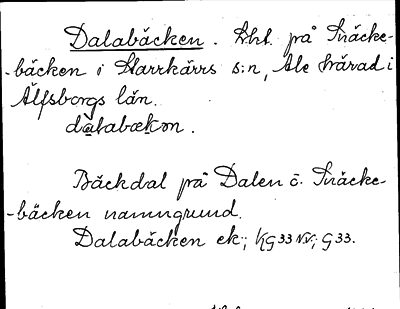 Dalabäcken. Kht. på Snäcke-
-bäcken i Starrkärrs s:n, Ale härad i
Älfsborgs län.
dalabækən.
Bäckdal på Dalen o. Snäcke-
-bäcken namngrund.
Dalabäcken ek; KG 33 NV; G 33.